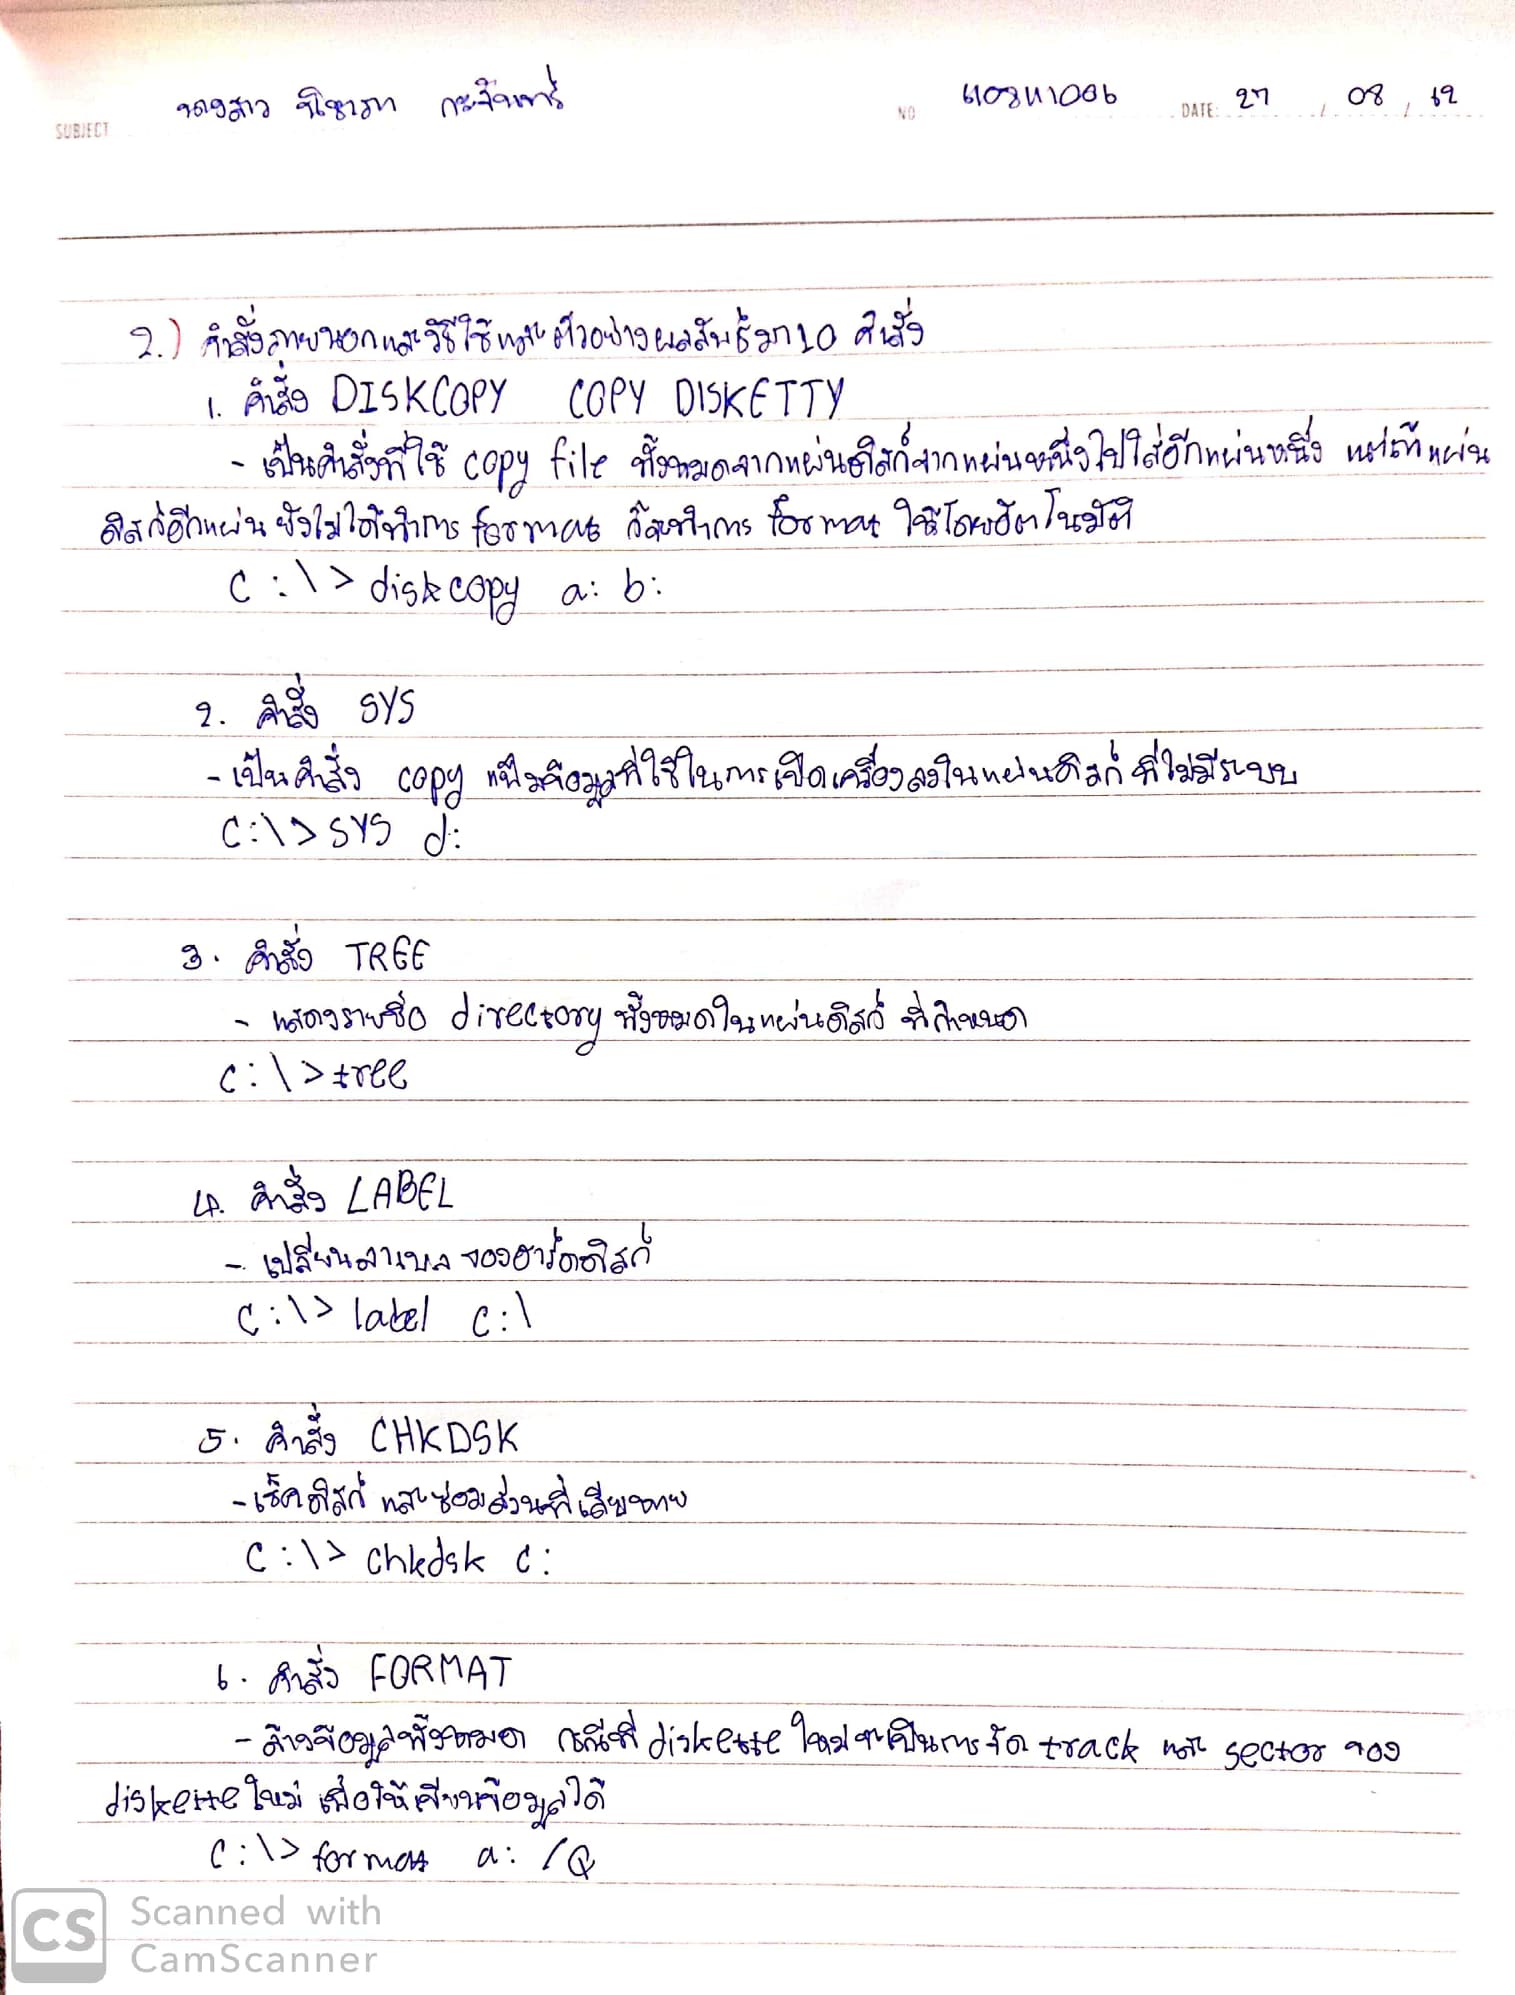 SUBJECT นางสาว NO DATE: 27 / 08 / 62
2.) คำสั่งภายนอกและวิธีใช้และตัวอย่างผลลัพธ์มา 10 คำสั่ง
1. คำสั่ง DISKCOPY COPY DISKETTY
- เป็นคำสั่งที่ใช้ copy file ทั้งหมดจากแผ่นดิสก์จากแผ่นหนึ่งไปใส่อีกแผ่นหนึ่ง แต่ถ้าแผ่น
ดิสก์อีกแผ่น ยังไม่ได้ทำการ format ก็จะทำการ format ให้โดยอัตโนมัติ
C:\> diskcopy a: b:
2. คำสั่ง SYS
- เป็นคำสั่ง copy แฟ้มข้อมูลที่ใช้ในการเปิดเครื่องลงในแผ่นดิสก์ ที่ไม่มีระบบ
C:\> SYS d:
3. คำสั่ง TREE
- แสดงรายชื่อ directory ทั้งหมดในแผ่นดิสก์ ที่กำหนด
C:\>tree
4. คำสั่ง LABEL
- เปลี่ยนลาเบล ของฮาร์ดดิสก์
C:\> label c:\
5. คำสั่ง CHKDSK
- เช็คดิสก์ และซ่อมส่วนที่เสียหาย
C:\> chkdsk c:
6. คำสั่ง FORMAT
- ล้างข้อมูลทั้งหมด กรณีที่ diskette ใหม่จะเป็นการจัด track และ sector ของ
diskette ใหม่ เพื่อให้เขียนข้อมูลได้
C:\> format a: /Q
CS Scanned with
CamScanner